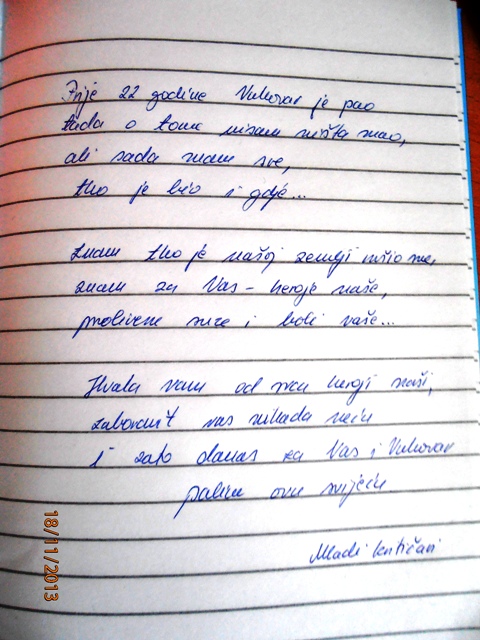 Prije 22 godine Vukovar je pao
tada o tome nisam ništa znao,
ali sada znam sve,
tko je bio i gdje...
znam tko je našoj zemlji vršio sve,
znam za Vas - heroje naše,
prolivene suze i boli vaše...
Hvala vam od srca heroji naši,
zaboravit vas nikada neću
i zato danas za Vas i Vukovar
palim ovu svijeću
Mladi
18/11/2013